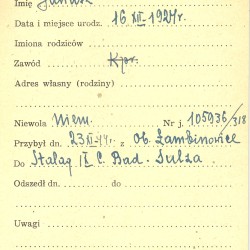 Imię Janusz
Data i miejsce urodz. 16 XII 1924r.
Imiona rodziców
Zawód Kpr.
Adres własny (rodziny)
Niewola Niem. Nr j. 105936/318
Przybył dn. 23 XI 44r. z Ob. Łambinowice
Do Stalag IX C. Bad. Sulza.
Odszedł dn. do
Uwagi